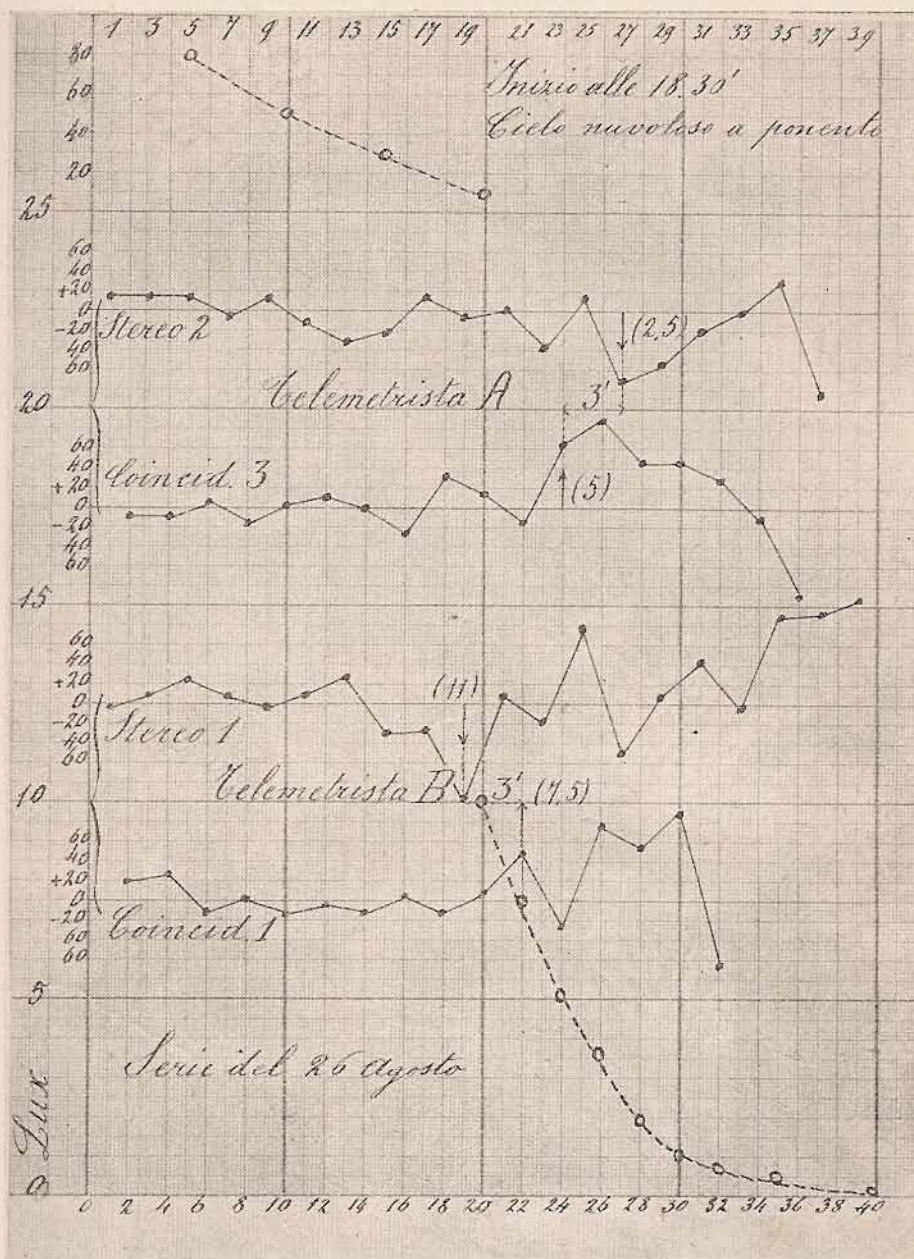 1 3 5 7 9 11 13 15 17 19 21 23 25 27 29 31 33 35 37 39
80
60
40
20
25
Inizio alle 18.30'
Cielo nuvoloso a ponente
60
40
+20
0
-20
40
60
Stereo 2
(2,5)
Telemetrista A
3'
20
60
40
+20
0
-20
40
60
Coincid. 3
(5)
15
60
40
+20
0
-20
40
60
Stereo 1
(11)
Telemetrista B
3'
(7,5)
10
60
40
+20
0
-20
60
60
Coincid. 1
5
Serie del 26 agosto
Lux
0
0 2 4 6 8 10 12 14 16 18 20 22 24 26 28 30 32 34 36 38 40